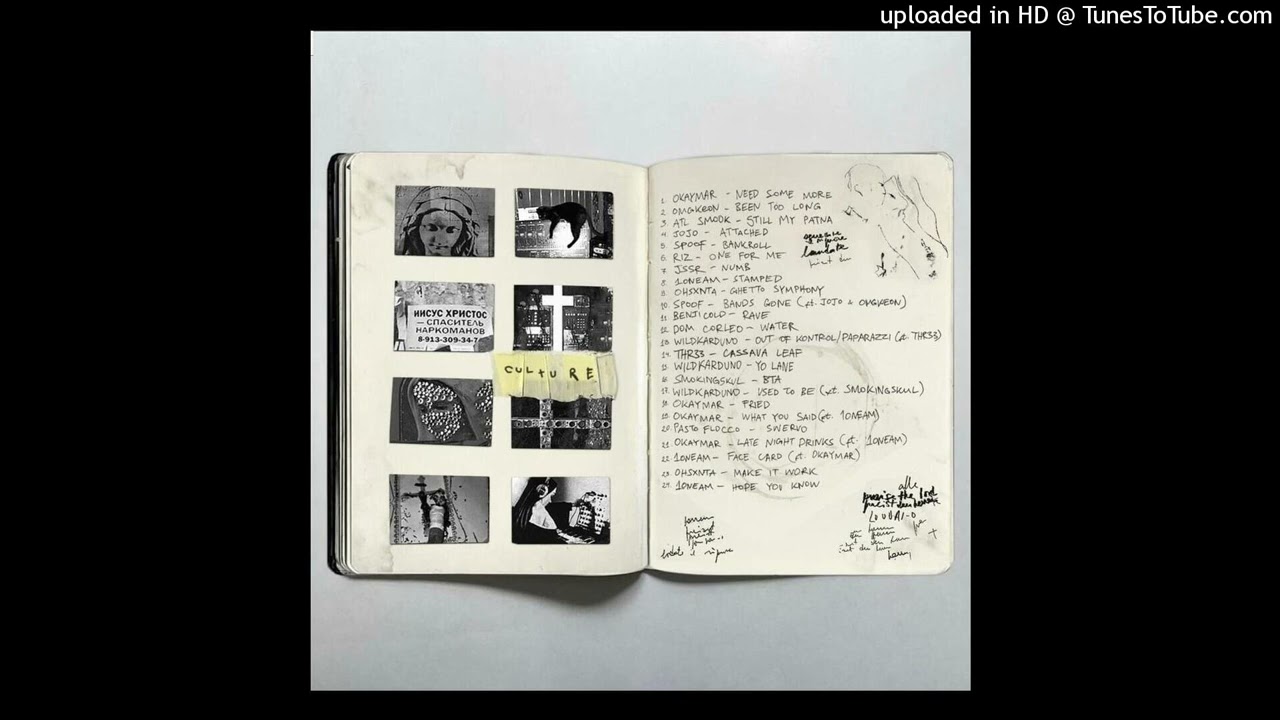 uploaded in HD @ TunesToTube.com
ИИСУС ХРИСТОС
— СПАСИТЕЛЬ
НАРКОМАНОВ
8-913-309-34-7
CULTURE
1. OKAYMAR - NEED SOME MORE
2. OMGKEON - BEEN TOO LONG
3. ATL SMOOK - STILL MY PATNA
4. JOJO - ATTACHED
5. SPOOF - BANKROLL
6. RIZ - ONE FOR ME
7. JSSR - NUMB
8. 1ONEAM - STAMPED
9. OHSXNTA - GHETTO SYMPHONY
10. SPOOF - BANDS GONE (ft. JOJO & OMGKEON)
11. BENJICOLD - RAVE
12. DOM CORLEO - WATER
13. WILDKARDUNO - OUT OF KONTROL/PAPARAZZI (ft. THR33)
14. THR33 - CASSAVA LEAF
15. WILDKARDUNO - YO LANE
16. SMOKINGSKUL - BTA
17. WILDKARDUNO - USED TO BE (ft. SMOKINGSKUL)
18. OKAYMAR - FRIED
19. OKAYMAR - WHAT YOU SAID (ft. 1ONEAM)
20. PASTO FLOCCO - SWERVO
21. OKAYMAR - LATE NIGHT DRINKS (ft. 1ONEAM)
22. 1ONEAM - FACE CARD (ft. OKAYMAR)
23. OHSXNTA - MAKE IT WORK
24. 1ONEAM - HOPE YOU KNOW
praise the lord